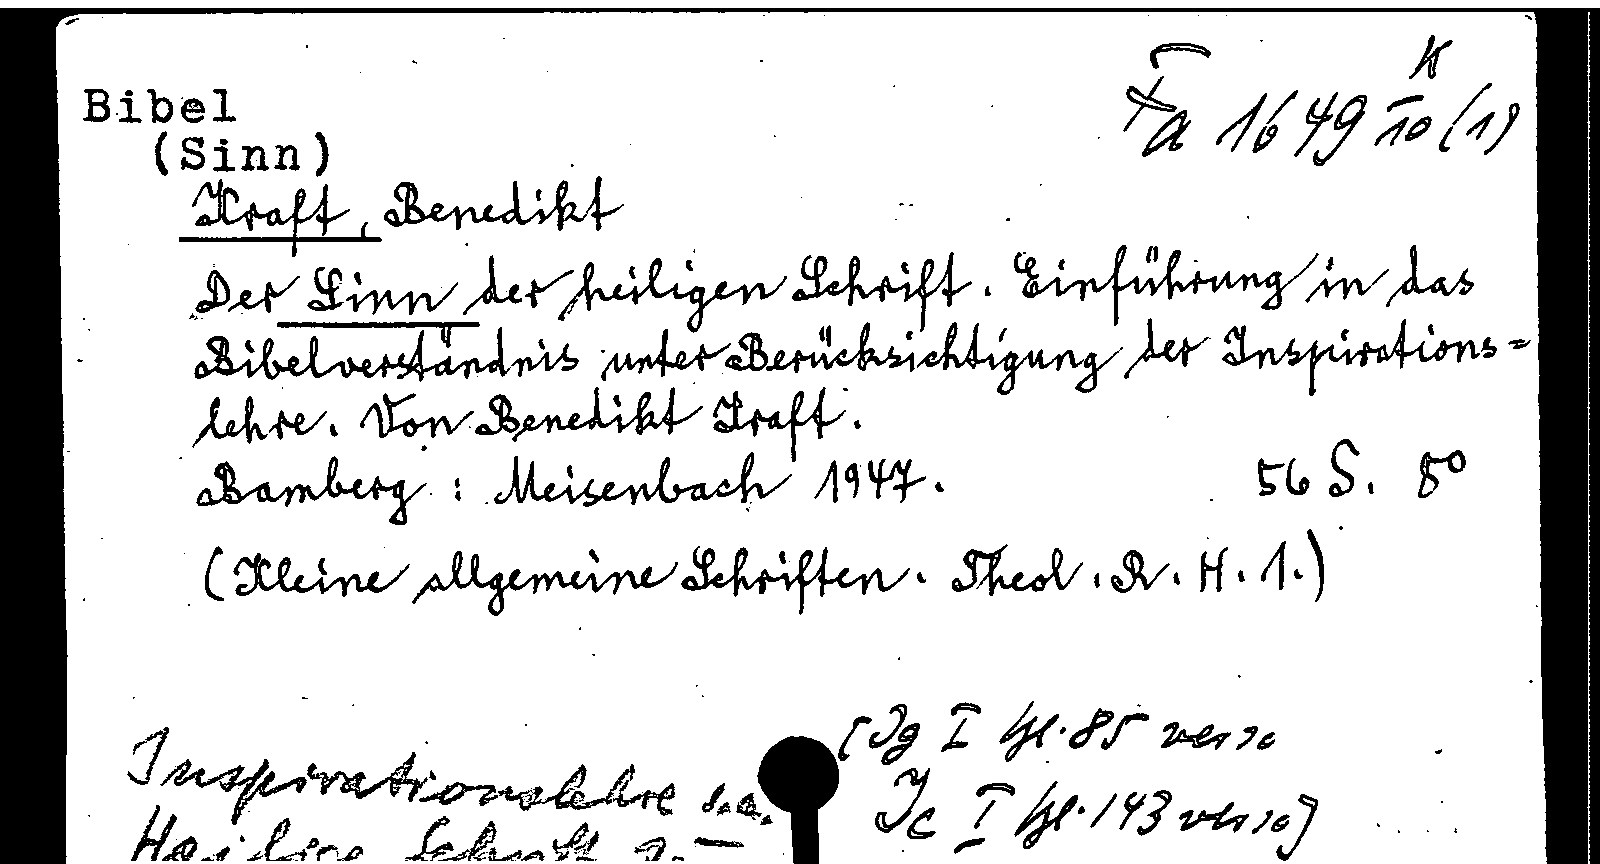 Bibel
(Sinn)
Fa 1649 K/10 (1)
Kraft, Benedikt
Der Sinn der heiligen Schrift. Einführung in das
Bibelverständnis unter Berücksichtigung der Inspirations=
lehre. Von Benedikt Kraft.
Bamberg : Meisenbach 1947. 56 S. 8°
(Kleine allgemeine Schriften. Theol. R. H. 1.)
[Jg I Bl. 85 verso
Jc I Bl. 143 verso]
Inspirationslehre s.a.
Heilige Schrift